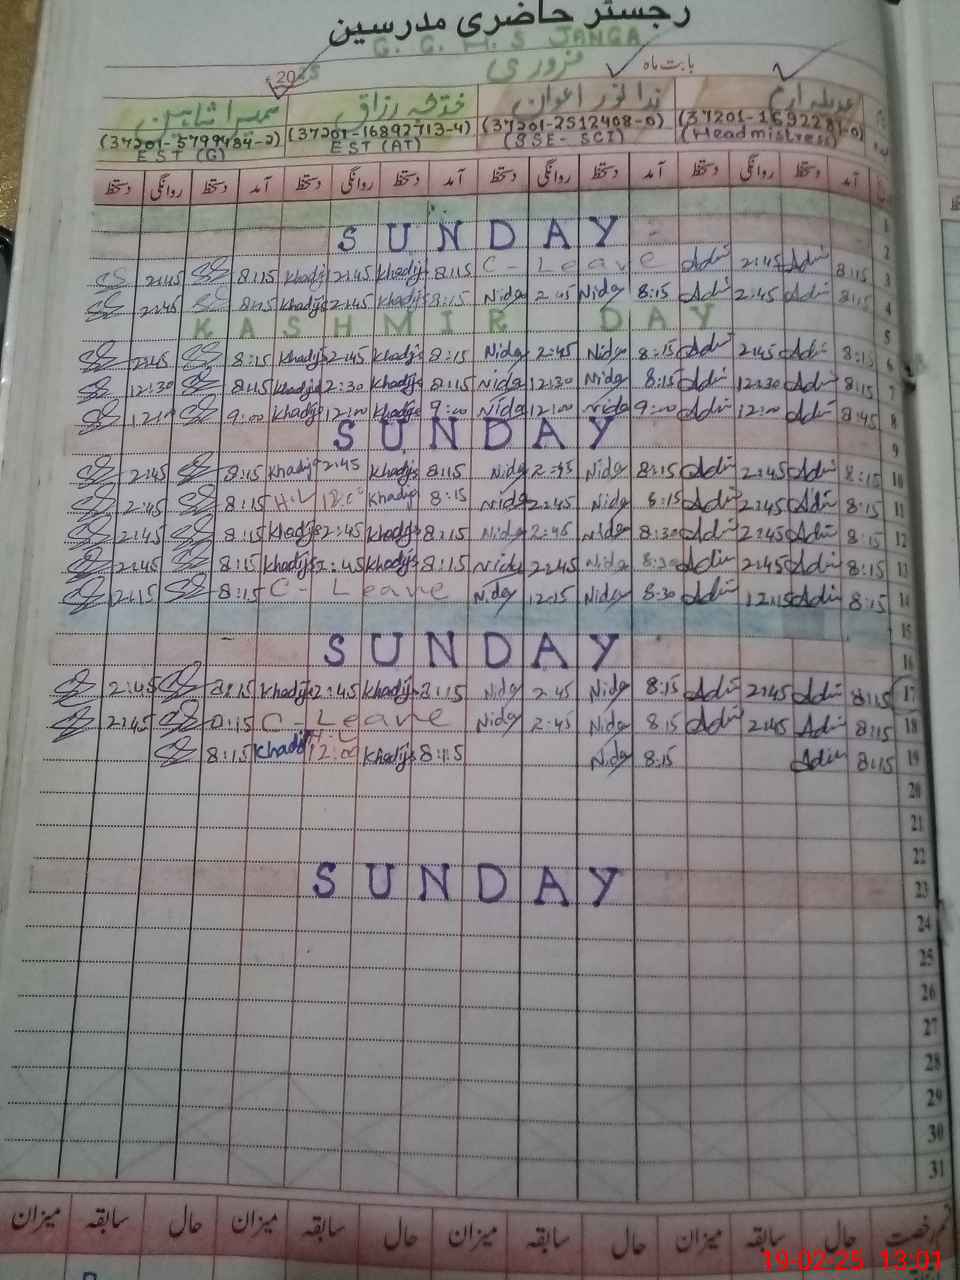 رجسٹر حاضری مدرسین
G. G. M. S JANGA
بابت ماہ فروری 2025
عدیلہ ارم ندا نور اعوان خدیجہ رزاق سمیرا شاہین
(37201-1692281-0) (37201-2512468-0) (37201-16892713-4) (37201-5799484-2)
(Headmistress) (SSE-SCI) EST (AT) EST (G)
آمد دستخط روانگی دستخط آمد دستخط روانگی دستخط آمد دستخط روانگی دستخط آمد دستخط روانگی دستخط
1
SUNDAY 2
2:45 8:15 Khadija 2:45 Khadija 8:15 C-Leave 2:45 8:15 3
2:45 8:15 Khadija 2:45 Khadija 8:15 Nida 2:45 Nida 8:15 2:45 8:15 4
KASHMIR DAY 5
2:45 8:15 Khadija 2:45 Khadija 8:15 Nida 2:45 Nida 8:15 2:45 8:15 6
12:30 8:15 Khadija 12:30 Khadija 8:15 Nida 12:30 Nida 8:15 12:30 8:15 7
9:00 Khadija 12:00 Khadija 9:00 Nida 12:00 Nida 9:00 12:00 8:45 8
SUNDAY 9
2:45 8:15 Khadija 2:45 Khadija 8:15 Nida 2:45 Nida 8:15 2:45 8:15 10
2:45 8:15 H.L 12:00 Khadija 8:15 Nida 2:45 Nida 8:15 2:45 8:15 11
2:45 8:15 Khadija 2:45 Khadija 8:15 Nida 2:45 Nida 8:30 2:45 8:15 12
2:45 8:15 Khadija 2:45 Khadija 8:15 Nida 2:45 Nida 8:30 2:45 8:15 13
8:15 C-Leave Nida 12:15 Nida 8:30 12:15 8:15 14
15
SUNDAY 16
2:45 8:15 Khadija 2:45 Khadija 8:15 Nida 2:45 Nida 8:15 2:45 8:15 17
2:45 8:15 C-Leave Nida 2:45 Nida 8:15 2:45 8:15 18
8:15 Khadija H.L 12:00 Khadija 8:15 Nida 8:15 8:15 19
20
21
22
SUNDAY 23
24
25
26
27
28
29
30
31
قسم رخصت حال سابقہ میزان حال سابقہ میزان حال سابقہ میزان حال سابقہ میزان
19-02-25 13:01